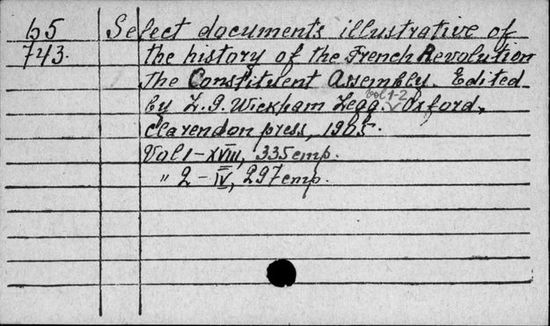 65 Select documents illustrative of
743. the history of the French Revolution
The Constituent Assembly. Edited
by L. G. Wickham Legg. Vol 1-2 Oxford,
Clarendon press, 1905.
Vol 1 - XVIII, 335 emp.
" 2 - IV, 297 emp.